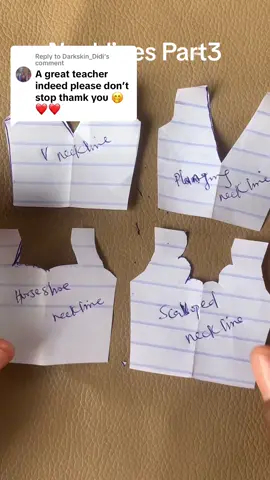 Necklines Part3
Reply to Darkskin_Didi's
comment
A great teacher
indeed please don't
stop thank you 🤭
❤️❤️
V neckline
Plunging
neckline
Horseshoe
neckline
Scalloped
neckline